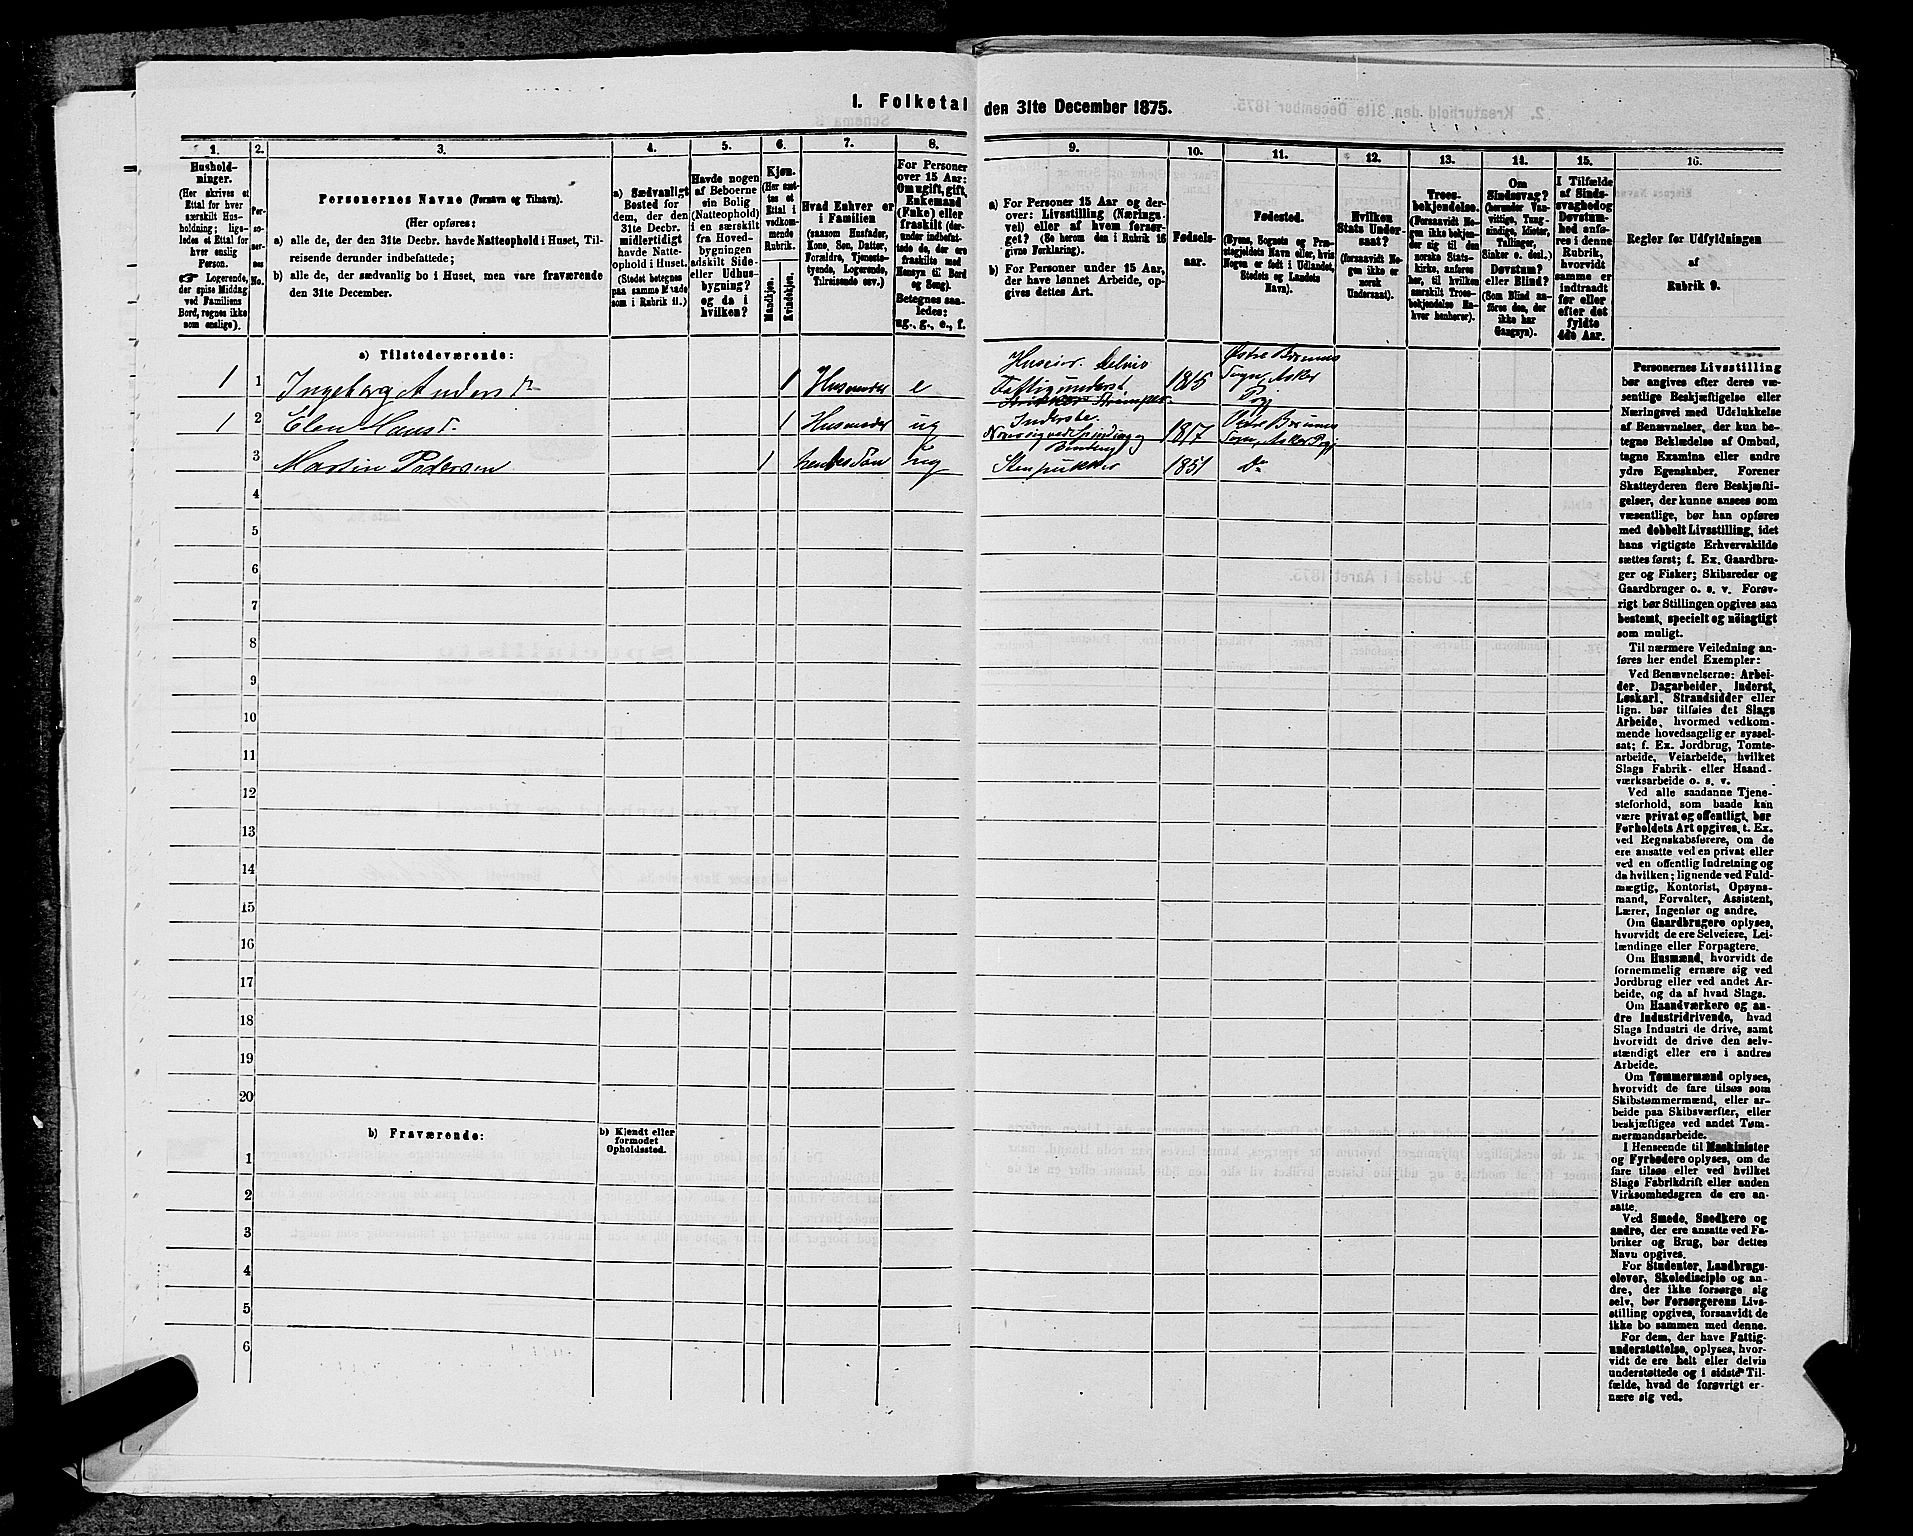 1. Folketal den 31te December 1875.
1. 2. 3. 4. 5. 6. 7. 8. 9. 10. 11. 12. 13. 14. 15. 16.
Hushold-
ninger.
(Her skrives et
Ettal for hver
særskilt Hus-
holdning; lige-
ledes et Ettal for
hver enslig
Person.
☞ Logerende,
der spise Middag
ved Familiens
Bord, regnes ikke
som enslige).
Per-
so-
ner-
nes
No.
Personernes Navne (Fornavn og Tilnavn).
(Her opføres:
a) alle de, der den 31te Decbr. havde Natteophold i Huset, Til-
reisende derunder indbefattede;
b) alle de, der sædvanlig bo i Huset, men vare fraværende
den 31te December.
a) Sædvanligt
Bosted for
dem, der den
31te Decbr.
midlertidigt
havde Natte-
ophold i Huset.
(Stedet betegnes
paa samme Maade
som i Rubrik 11.)
Havde nogen
af Beboerne
sin Bolig
(Natteophold)
i en særskilt
fra Hoved-
bygningen
adskilt Side-
eller Udhus-
bygning?
og da i
hvilken?
Kjøn.
(Her sæt-
tes et
Ettal i
vedkom-
mende
Rubrik.
Mandkjøn.
Kvindekjøn.
Hvad Enhver er
i Familien
(saasom Husfader,
Kone, Søn, Datter,
Forældre, Tjeneste-
tyende, Logerende,
Tilreisende osv.)
For Personer
over 15 Aar:
Om ugift, gift,
Enkemand
(Enke) eller
fraskilt (der-
under indbefat-
tede de, der ere
fraskilte med
Hensyn til Bord
og Seng).
Betegnes saa-
ledes:
ug., g., e., f.
a) For Personer 15 Aar og der-
over: Livsstilling (Nærings-
vei) eller af hvem forsør-
get? (Se herom den i Rubrik 16
givne Forklaring).
b) For Personer under 15 Aar,
der have lønnet Arbeide, op-
gives dettes Art.
Fødsels-
aar.
Fødested.
(Byens, Sognets og Præ-
stegjeldets Navn eller, hvis
Nogen er født i Udlandet,
Stedets og Landets
Navn).
Hvilken
Stats Under-
saat?
(forsaavidt No-
gen ikke er
norsk
Undersaat).
Troes-
bekjendelse.
(Forsaavidt No-
gen ikke bekjen-
der sig til den
norske Stats-
kirke, anføres
her, til hvilken
særskilt Troes-
bekjendelse En-
hver henhører).
Om
Sindssvag?
(herunder Van-
vittige, Tung-
sindige, Idioter,
Tullinger,
Sinker o. desl.)
Døvstum?
eller Blind?
(Som Blind an-
føres den, der
ikke har
Gangsyn).
I Tilfælde
af Sinds-
svaghed og
Døvstum-
hed anfø-
res i denne
Rubrik,
hvorvidt
samme er
indtraadt
før eller
efter det
fyldte
4de Aar.
Regler for Udfyldningen
af
Rubrik 9.
a) Tilstedeværende:
1 1 Ingeborg Andersd. 1 Husmoder e Huseier. Delvis
Fattigunderst 1815 Østre Bærums
Sogn, Asker
Pgj
1 2 Elen Hansd. 1 Husmoder ug Inderste. 1817 Østre Bærums
Sogn, Asker Pgj
3 Martin Pedersen 1 hendes Søn ug Stenpukker 1851 Do
4
5
6
7
8
9
10
11
12
13
14
15
16
17
18
19
20
b) Fraværende:
b) Kjendt eller
formodet
Opholdssted.
1
2
3
4
5
6
Personernes Livsstilling
bør angives efter deres væ-
sentlige Beskjæftigelse eller
Næringsvei med Udelukkelse
af Benævnelser, der kun be-
tegne Beklædelse af Ombud,
tagne Examina eller andre
ydre Egenskaber. Forener
Skatteyderen flere Beskjæfti-
gelser, der kunne ansees som
væsentlige, bør han opføres
med dobbelt Livsstilling, idet
hans vigtigste Erhvervskilde
sættes først; f. Ex. Gaardbru-
ger og Fisker; Skibsreder og
Gaardbruger o. s. v. Forøv-
rigt bør Stillingen opgives saa
bestemt, specielt og nøiagtigt
som muligt.
Til nærmere Veiledning an-
føres her endel Exempler:
Ved Benævnelserne: Arbei-
der, Dagarbeider, Inderst,
Løskarl, Strandsidder eller
lign. bør tilføies det Slags
Arbeide, hvormed vedkom-
mende hovedsagelig er syssel-
sat; f. Ex. Jordbrug, Tomte-
arbeide, Veiarbeide, hvilket
Slags Fabrik- eller Haand-
værksarbeide o. s. v.
Ved alle saadanne Tjene-
steforhold, som baade kan
være privat og offentligt, bør
Forholdets Art opgives, t. Ex.
ved Regnskabsførere, om de
ere ansatte ved en privat eller
ved en offentlig Indretning og
da hvilken; lignende ved Fuld-
mægtig, Kontorist, Opsyns-
mand, Forvalter, Assistent,
Lærer, Ingeniør og andre.
Om Gaardbrugere oplyses,
hvorvidt de ere Selveiere, Lei-
lændinge eller Forpagtere.
Om Husmænd, hvorvidt de
fornemmelig ernære sig ved
Jordbrug eller ved andet Ar-
beide, og da af hvad Slags.
Om Haandværkere og an-
dre Industridrivende, hvad
Slags Industri de drive, samt
hvorvidt de drive den selv-
stændigt eller ere i andres
Arbeide.
Om Tømmermænd oplyses,
hvorvidt de fare tilsøs som
Skibstømmermænd, eller ar-
beide paa Skibsværfter, eller
beskjæftiges ved andet Tøm-
mermandsarbeide.
I Henseende til Maskinister
og Fyrbødere oplyses, om de
fare tilsøs eller ved hvilket
Slags Fabrikdrift eller anden
Virksomhedsgren de ere an-
satte.
Ved Smede, Snedkere og
andre, der ere ansatte ved Fa-
briker og Brug, bør dettes
Navn opgives.
For Studenter, Landbrugs-
elever, Skoledisciple og an-
dre, der ikke forsørge sig
selv, bør Forsørgerens Livs-
stilling opgives, forsaavidt de
ikke bo sammen med denne.
For dem, der have Fattig-
understøttelse, oplyses, hvor-
vidt de ere helt eller delvis
understøttede og i sidste Til-
fælde, hvad de forøvrigt er-
nære sig ved.